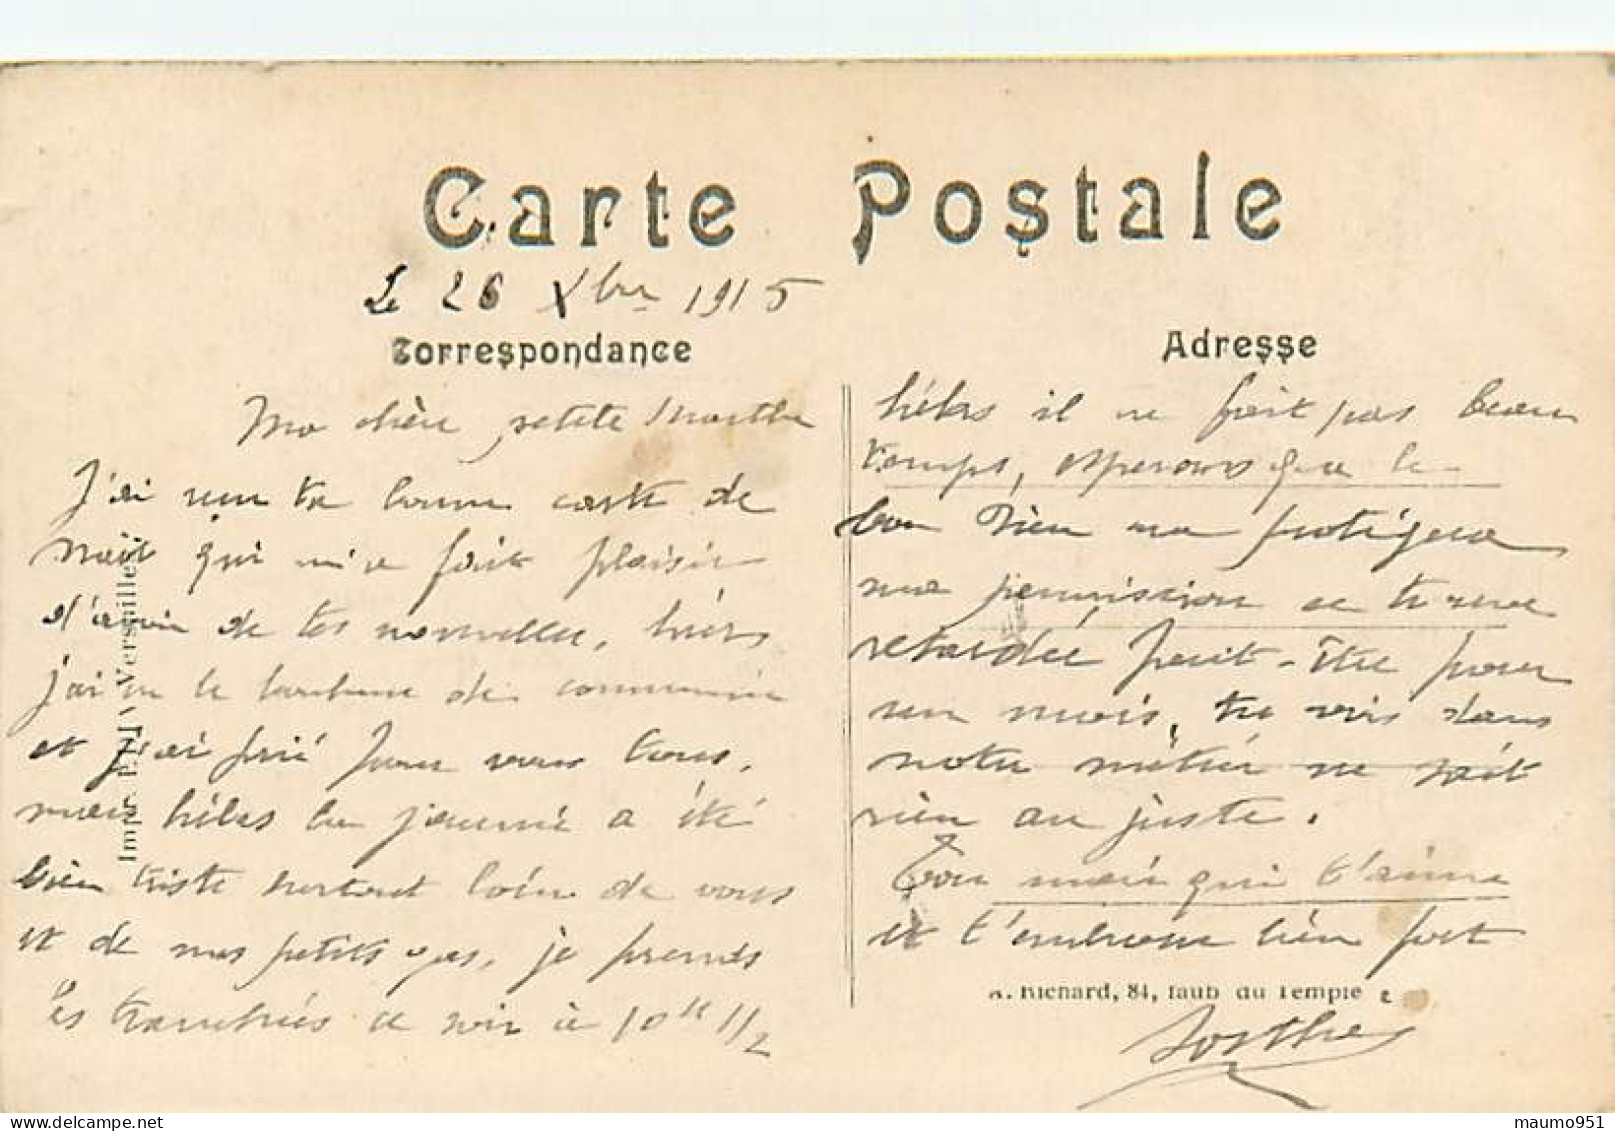 Carte Postale
Le 26 Xbre 1915
Correspondance
Ma chère petite Marthe
J'ai reçu ta bonne carte de
Noël qui m'a fait plaisir
d'avoir de tes nouvelles, hiers
j'ai eu le bonheur de communié
et j'ai prié pour vous tous,
mais hélas la journé a été
bien triste surtout loin de vous
et de mes petits gas, je prends
les tranchées ce soir à 10 h 1/2
Imp. E.L.D. Versailles
Adresse
hélas il ne fait pas beau
temps, esperons que le
bon Dieu me protégera
ma permission ce trouve
retardée peut-être pour
un mois, tu vois dans
notre métier on sait
rien au juste.
Ton mari qui t'aime
et t'embrasse bien fort
A. Richard, 84, faub du Temple
maumo951